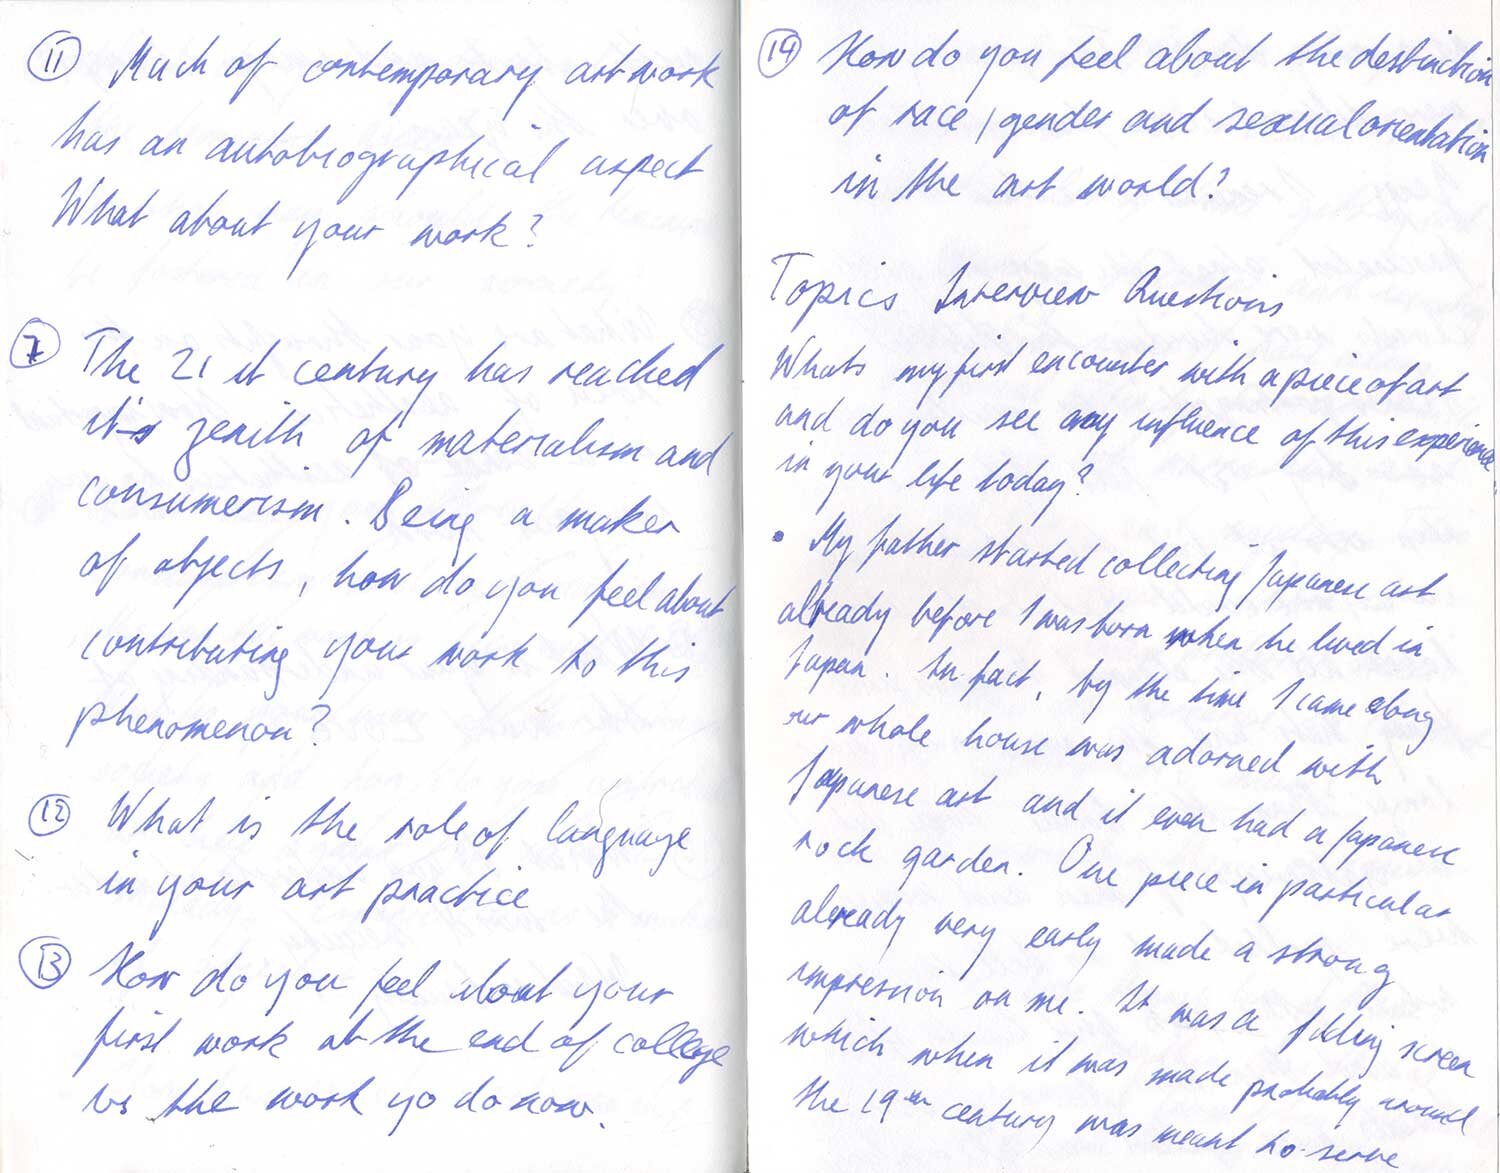 11 Much of contemporary artwork
has an autobiographical aspect
What about your work?
7 The 21 st century has reached
it's zenith of materialism and
consumerism. Being a maker
of objects, how do you feel about
contributing your work to this
phenomenon?
12 What is the role of language
in your art practice
13 How do you feel about your
first work at the end of college
vs the work yo do now.
14 How do you feel about the destinction
of race, gender and sexual orientation
in the art world?
Topics Interview Questions
Whats my first encounter with a piece of art
and do you see any influence of this experience
in your life today?
• My father started collecting Japanese art
already before I was born when he lived in
Japan. In fact, by the time I came along
our whole house was adorned with
Japanese art and it even had a Japanese
rock garden. One piece in particular
already very early made a strong
impression on me. It was a folding screen
which when it was made probably around
the 19th century was meant to serve